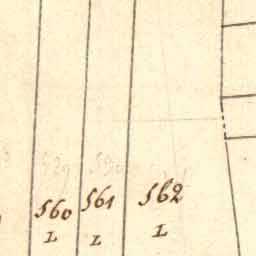 560 561 562
L L L